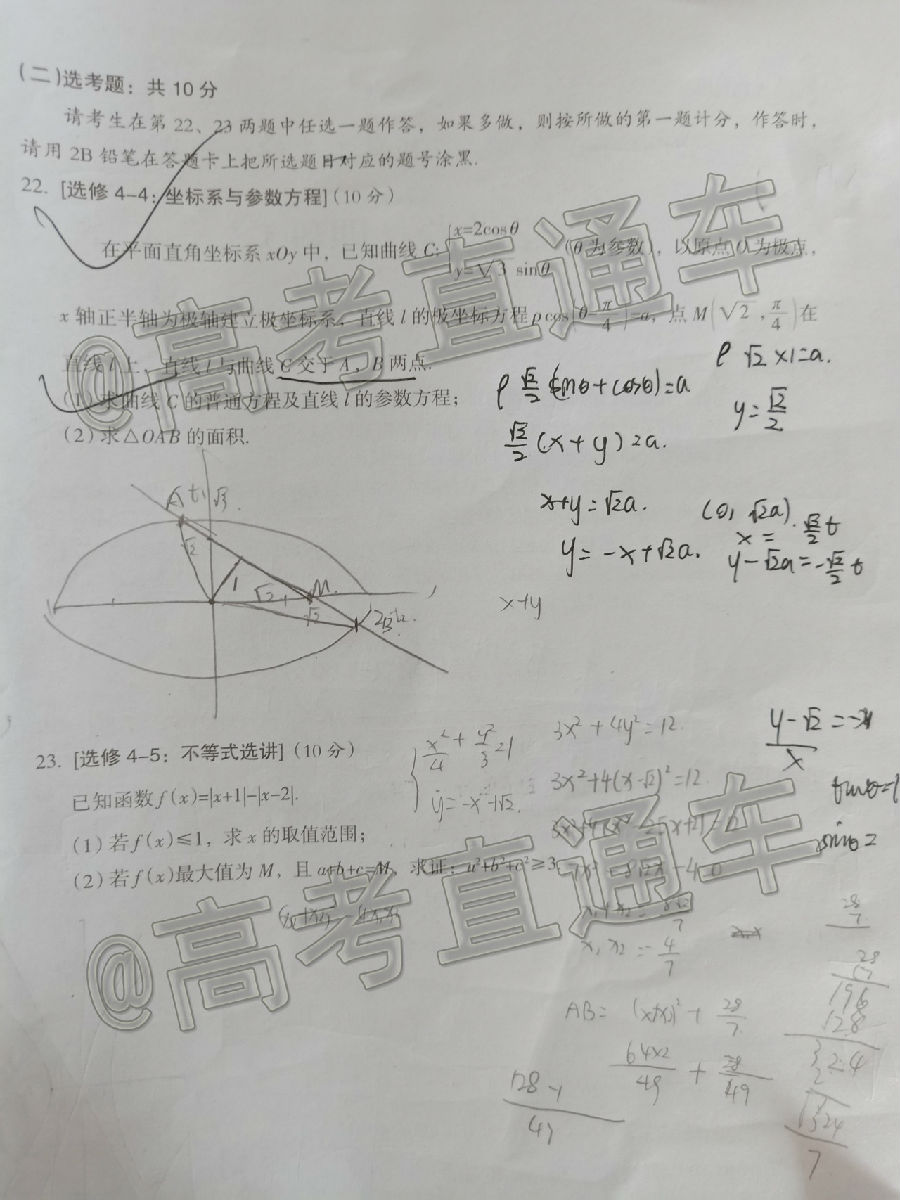 (二)选考题：共10分
请考生在第22、23两题中任选一题作答，如果多做，则按所做的第一题计分，作答时，
请用2B铅笔在答题卡上把所选题目对应的题号涂黑.
22. [选修4-4：坐标系与参数方程](10分)
在平面直角坐标系xOy中，已知曲线C:{x=2cosθ y=√3 sinθ (θ为参数)，以原点O为极点，
x轴正半轴为极轴建立极坐标系，直线l的极坐标方程ρcos(θ-π/4)=a，点M(√2,π/4)在
直线l上，直线l与曲线C交于A，B两点.
(1)求曲线C的普通方程及直线l的参数方程；
(2)求△OAB的面积.
ρ √2 ×1=a.
ρ √2/2 (sinθ+cosθ)=a
y=√2/2
√2/2 (x+y)=a.
x+y=√2a.
(0, √2a).
x= √2/2 t
y=-x+√2a.
y-√2a=-√2/2 t
x+y
A
√3
√2
1
M
√2
√2
B
23. [选修4-5：不等式选讲](10分)
已知函数f(x)=|x+1|-|x-2|.
(1)若f(x)≤1，求x的取值范围；
(2)若f(x)最大值为M，且a+b+c=M，求证：a²+b²+c²≥3.
x²/4+y²/3=1
y=-x+√2.
3x²+4y²=12.
3x²+4(x-√2)²=12.
x₁x₂=-4/7
AB=
28/7
64×2/49 + 28/49
128
49
28/7
28
196
128
324
7
@高考直通车
@高考直通车